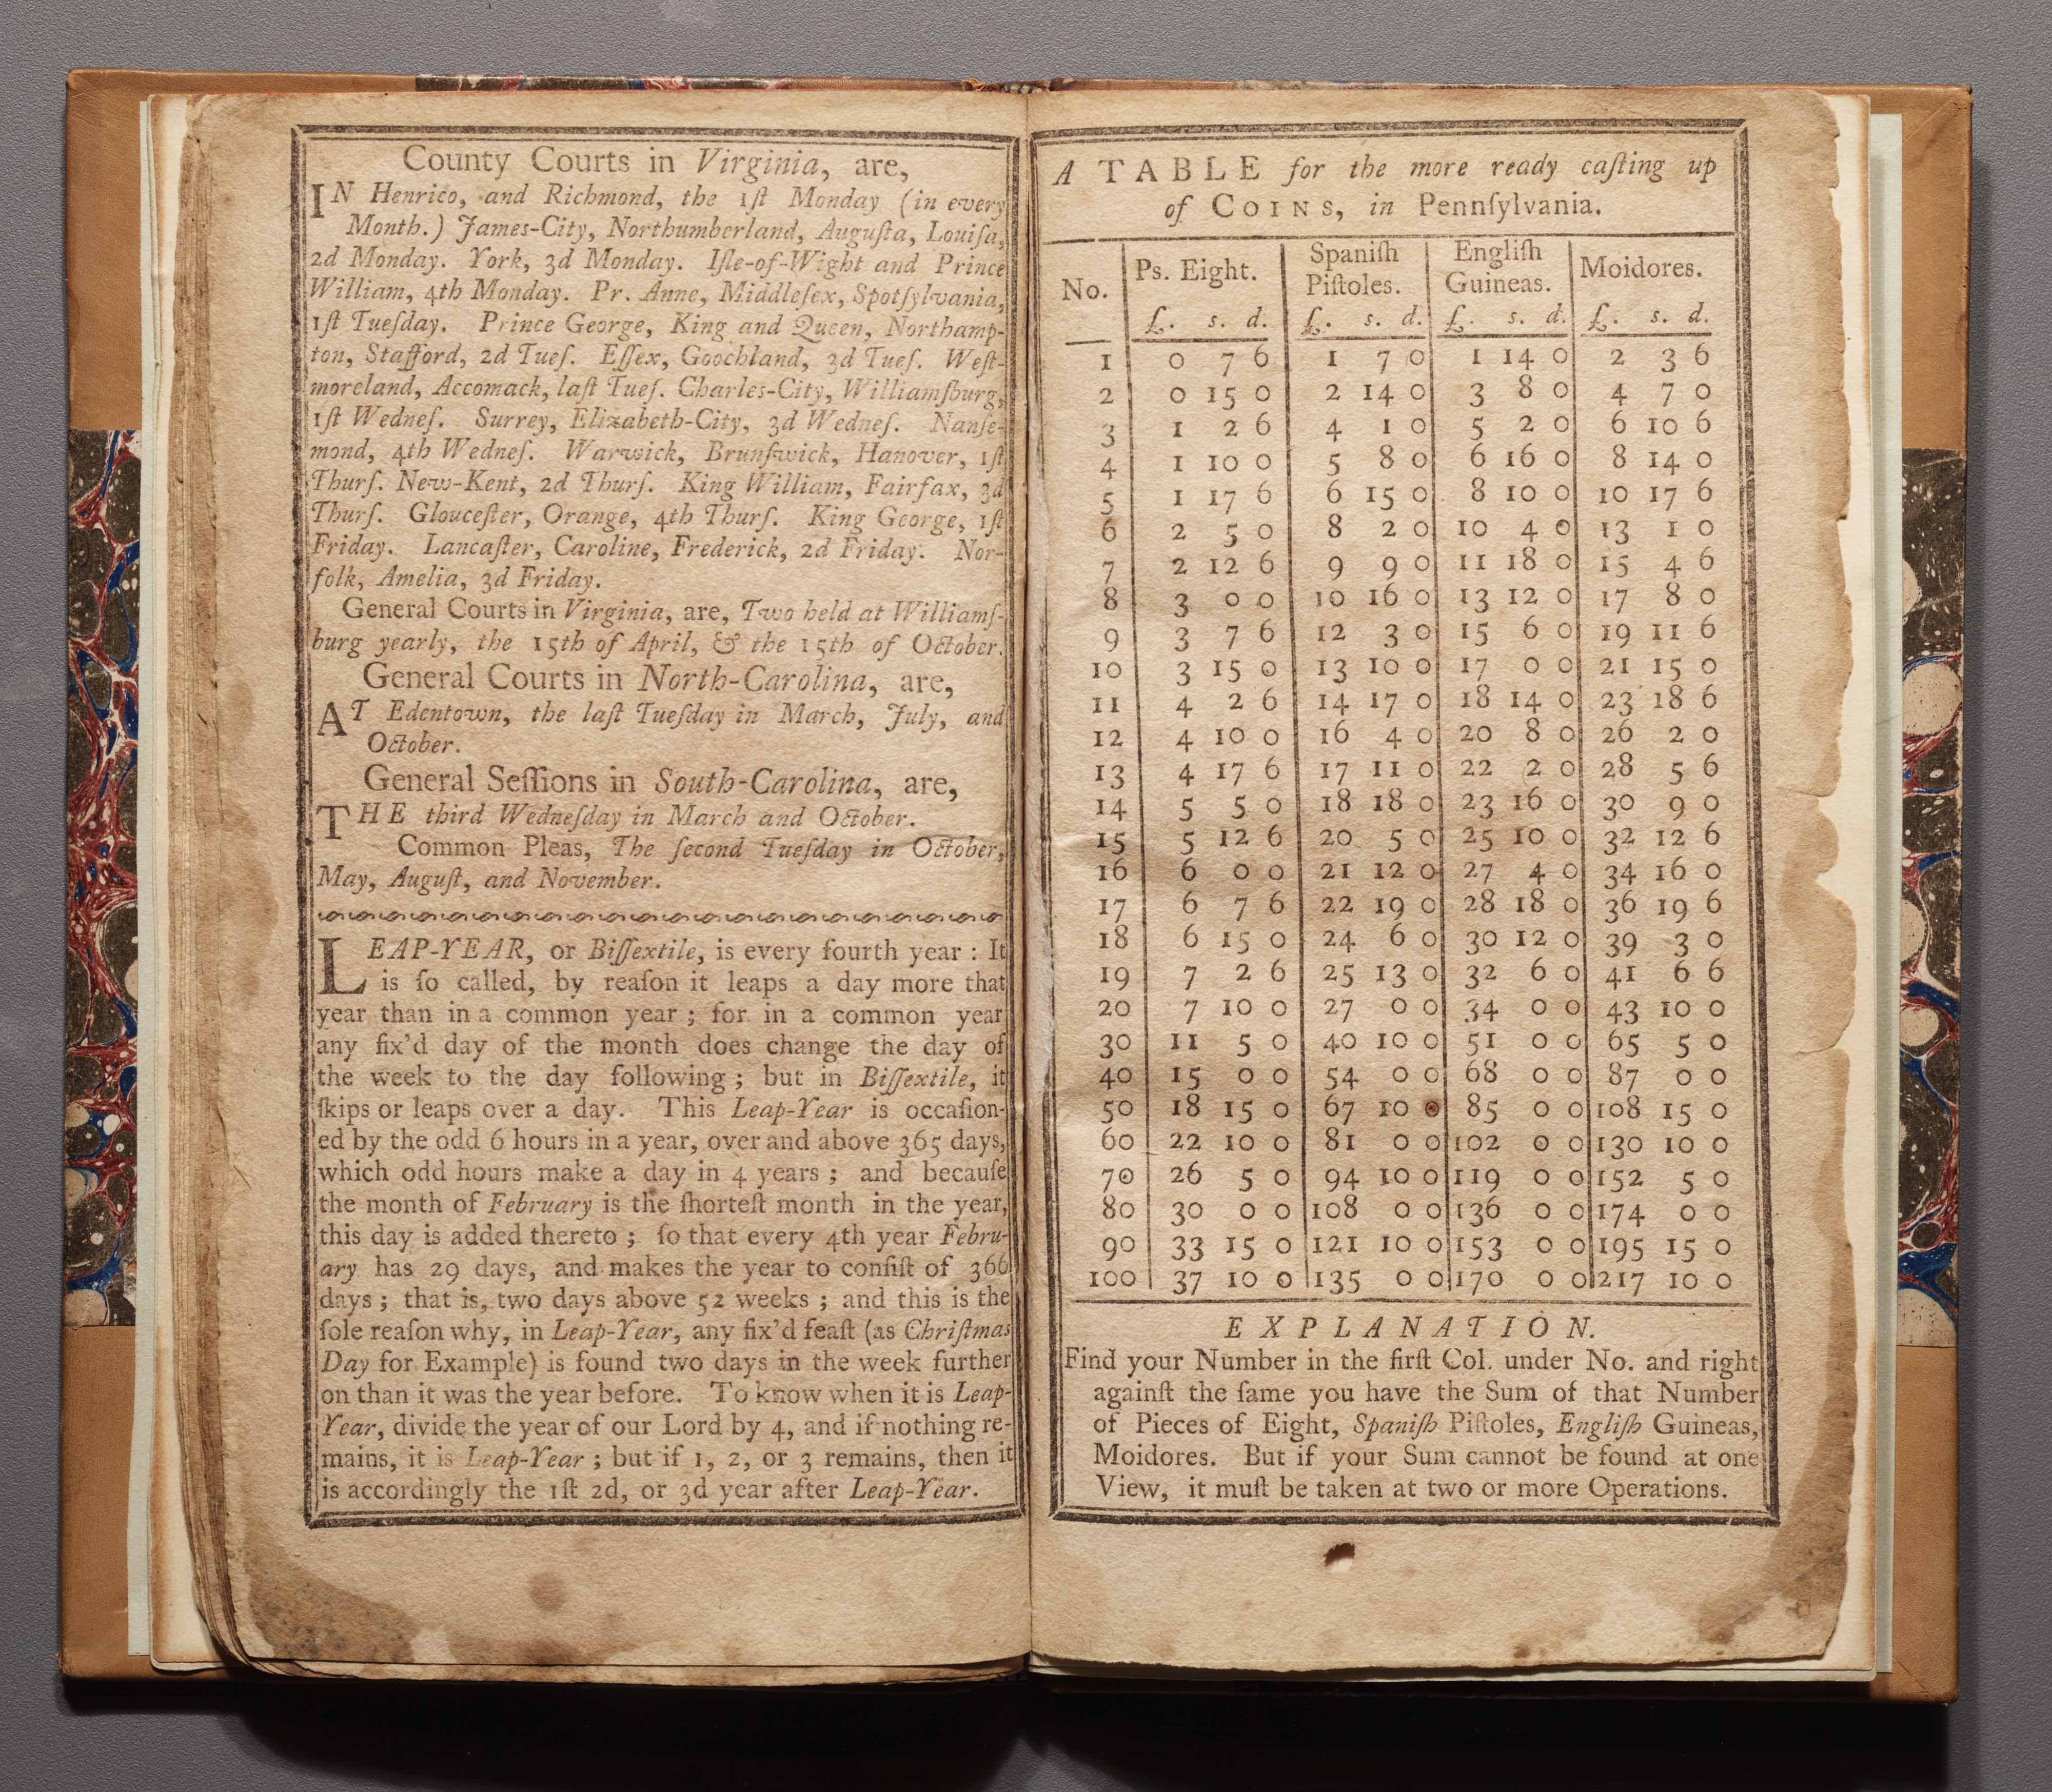 County Courts in Virginia, are,
IN Henrico, and Richmond, the 1ſt Monday (in every
Month.) James-City, Northumberland, Auguſta, Louiſa,
2d Monday. York, 3d Monday. Iſle-of-Wight and Prince
William, 4th Monday. Pr. Anne, Middleſex, Spotſylvania,
1ſt Tueſday. Prince George, King and Queen, Northamp-
ton, Stafford, 2d Tueſ. Eſſex, Goochland, 3d Tueſ. Weſt-
moreland, Accomack, laſt Tueſ. Charles-City, Williamſburg,
1ſt Wedneſ. Surrey, Elizabeth-City, 3d Wedneſ. Nanſe-
mond, 4th Wedneſ. Warwick, Brunſwick, Hanover, 1ſt
Thurſ. New-Kent, 2d Thurſ. King William, Fairfax, 3d
Thurſ. Glouceſter, Orange, 4th Thurſ. King George, 1ſt
Friday. Lancaſter, Caroline, Frederick, 2d Friday. Nor-
folk, Amelia, 3d Friday.
General Courts in Virginia, are, Two held at Williamſ-
burg yearly, the 15th of April, & the 15th of October.
General Courts in North-Carolina, are,
AT Edentown, the laſt Tueſday in March, July, and
October.
General Seſſions in South-Carolina, are,
THE third Wedneſday in March and October.
Common Pleas, The ſecond Tueſday in October,
May, Auguſt, and November.
LEAP-YEAR, or Biſſextile, is every fourth year : It
is ſo called, by reaſon it leaps a day more that
year than in a common year ; for in a common year
any fix'd day of the month does change the day of
the week to the day following ; but in Biſſextile, it
ſkips or leaps over a day. This Leap-Year is occaſion-
ed by the odd 6 hours in a year, over and above 365 days,
which odd hours make a day in 4 years ; and becauſe
the month of February is the ſhorteſt month in the year,
this day is added thereto ; ſo that every 4th year Febru-
ary has 29 days, and makes the year to conſiſt of 366
days ; that is, two days above 52 weeks ; and this is the
ſole reaſon why, in Leap-Year, any fix'd feaſt (as Chriſtmas
Day for Example) is found two days in the week further
on than it was the year before. To know when it is Leap-
Year, divide the year of our Lord by 4, and if nothing re-
mains, it is Leap-Year ; but if 1, 2, or 3 remains, then it
is accordingly the 1ſt 2d, or 3d year after Leap-Year.
A TABLE for the more ready caſting up
of COINS, in Pennſylvania.
No. Ps. Eight. Spaniſh Piſtoles. Engliſh Guineas. Moidores.
£. s. d. £. s. d. £. s. d. £. s. d.
1 0 7 6 1 7 0 1 14 0 2 3 6
2 0 15 0 2 14 0 3 8 0 4 7 0
3 1 2 6 4 1 0 5 2 0 6 10 6
4 1 10 0 5 8 0 6 16 0 8 14 0
5 1 17 6 6 15 0 8 10 0 10 17 6
6 2 5 0 8 2 0 10 4 0 13 1 0
7 2 12 6 9 9 0 11 18 0 15 4 6
8 3 0 0 10 16 0 13 12 0 17 8 0
9 3 7 6 12 3 0 15 6 0 19 11 6
10 3 15 0 13 10 0 17 0 0 21 15 0
11 4 2 6 14 17 0 18 14 0 23 18 6
12 4 10 0 16 4 0 20 8 0 26 2 0
13 4 17 6 17 11 0 22 2 0 28 5 6
14 5 5 0 18 18 0 23 16 0 30 9 0
15 5 12 6 20 5 0 25 10 0 32 12 6
16 6 0 0 21 12 0 27 4 0 34 16 0
17 6 7 6 22 19 0 28 18 0 36 19 6
18 6 15 0 24 6 0 30 12 0 39 3 0
19 7 2 6 25 13 0 32 6 0 41 6 6
20 7 10 0 27 0 0 34 0 0 43 10 0
30 11 5 0 40 10 0 51 0 0 65 5 0
40 15 0 0 54 0 0 68 0 0 87 0 0
50 18 15 0 67 10 0 85 0 0 108 15 0
60 22 10 0 81 0 0 102 0 0 130 10 0
70 26 5 0 94 10 0 119 0 0 152 5 0
80 30 0 0 108 0 0 136 0 0 174 0 0
90 33 15 0 121 10 0 153 0 0 195 15 0
100 37 10 0 135 0 0 170 0 0 217 10 0
EXPLANATION.
Find your Number in the firſt Col. under No. and right
againſt the ſame you have the Sum of that Number
of Pieces of Eight, Spaniſh Piſtoles, Engliſh Guineas,
Moidores. But if your Sum cannot be found at one
View, it muſt be taken at two or more Operations.